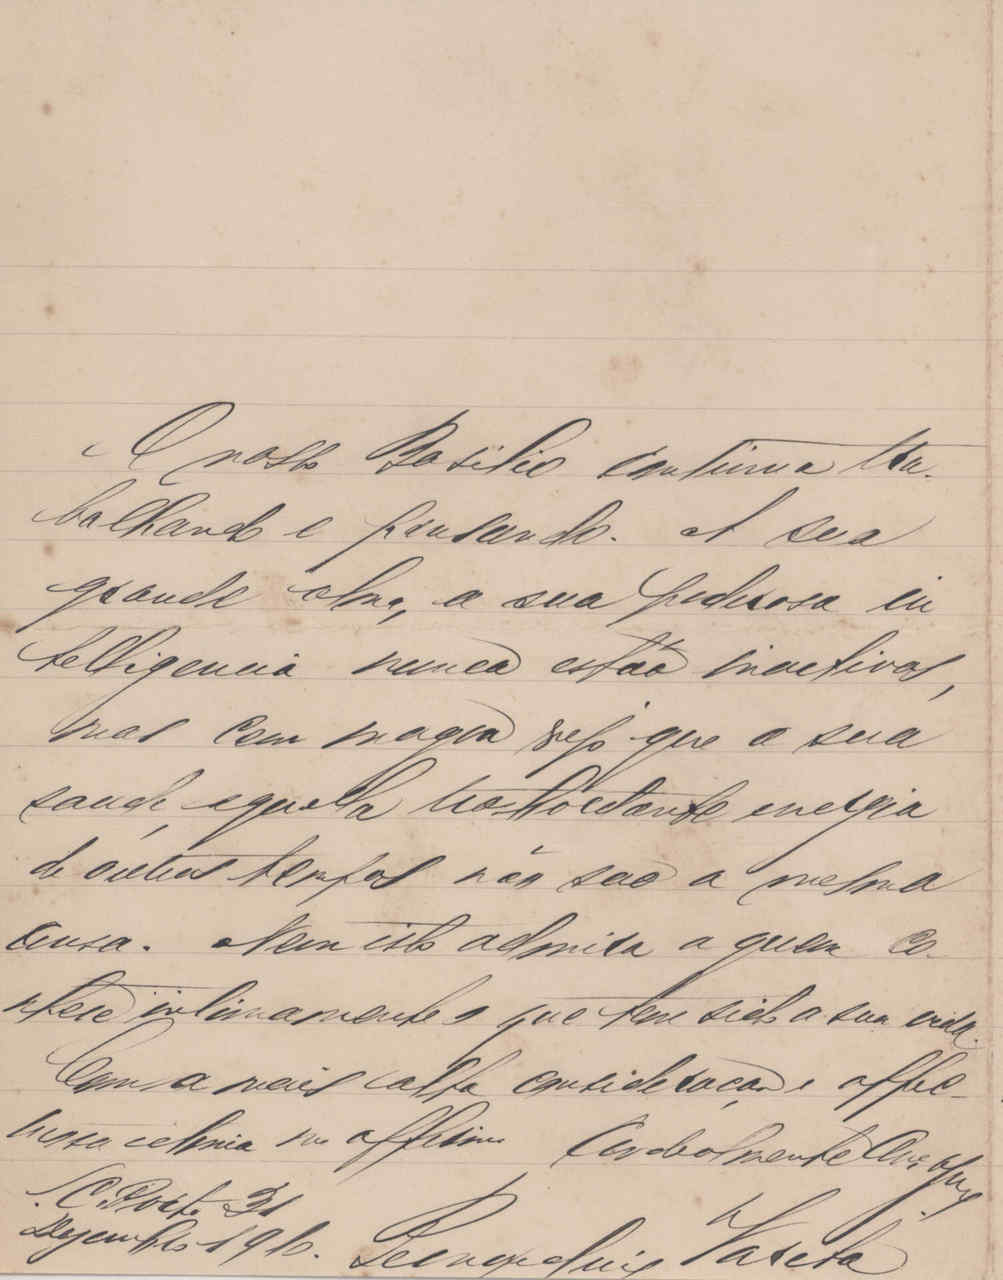 O nosso Basilio continua tra-
balhando e pensando. A sua
grande alma, a sua poderosa in
telligencia nunca estão inactivas,
mas com magoa vejo que a sua
saude, e aquella trasbordante energia
de outros tempos não são a mesma
cousa. Nem isto admira a quem co-
nhece intimamente o que tem sido a sua vida.
Com a mais alta consideração e affec-
tuosa estima me affirmo Cordealmente
S/C. Porto 31
Dezembro 1910. Varela